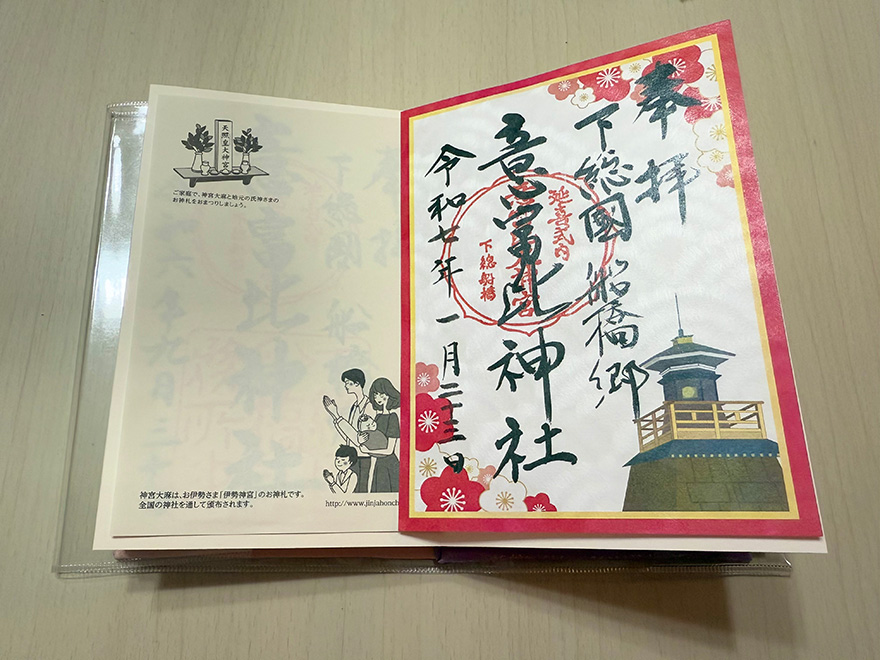 天照皇大神宮
ご家庭で、神宮大麻と地元の氏神さまの
お神札をおまつりしましょう。
神宮大麻は、お伊勢さま「伊勢神宮」のお神札です。
全国の神社を通して頒布されます。
http://www.jinjahonch
奉拝
下総國船橋郷
延喜式内
意富比神社
下総船橋
令和七年一月二十三日